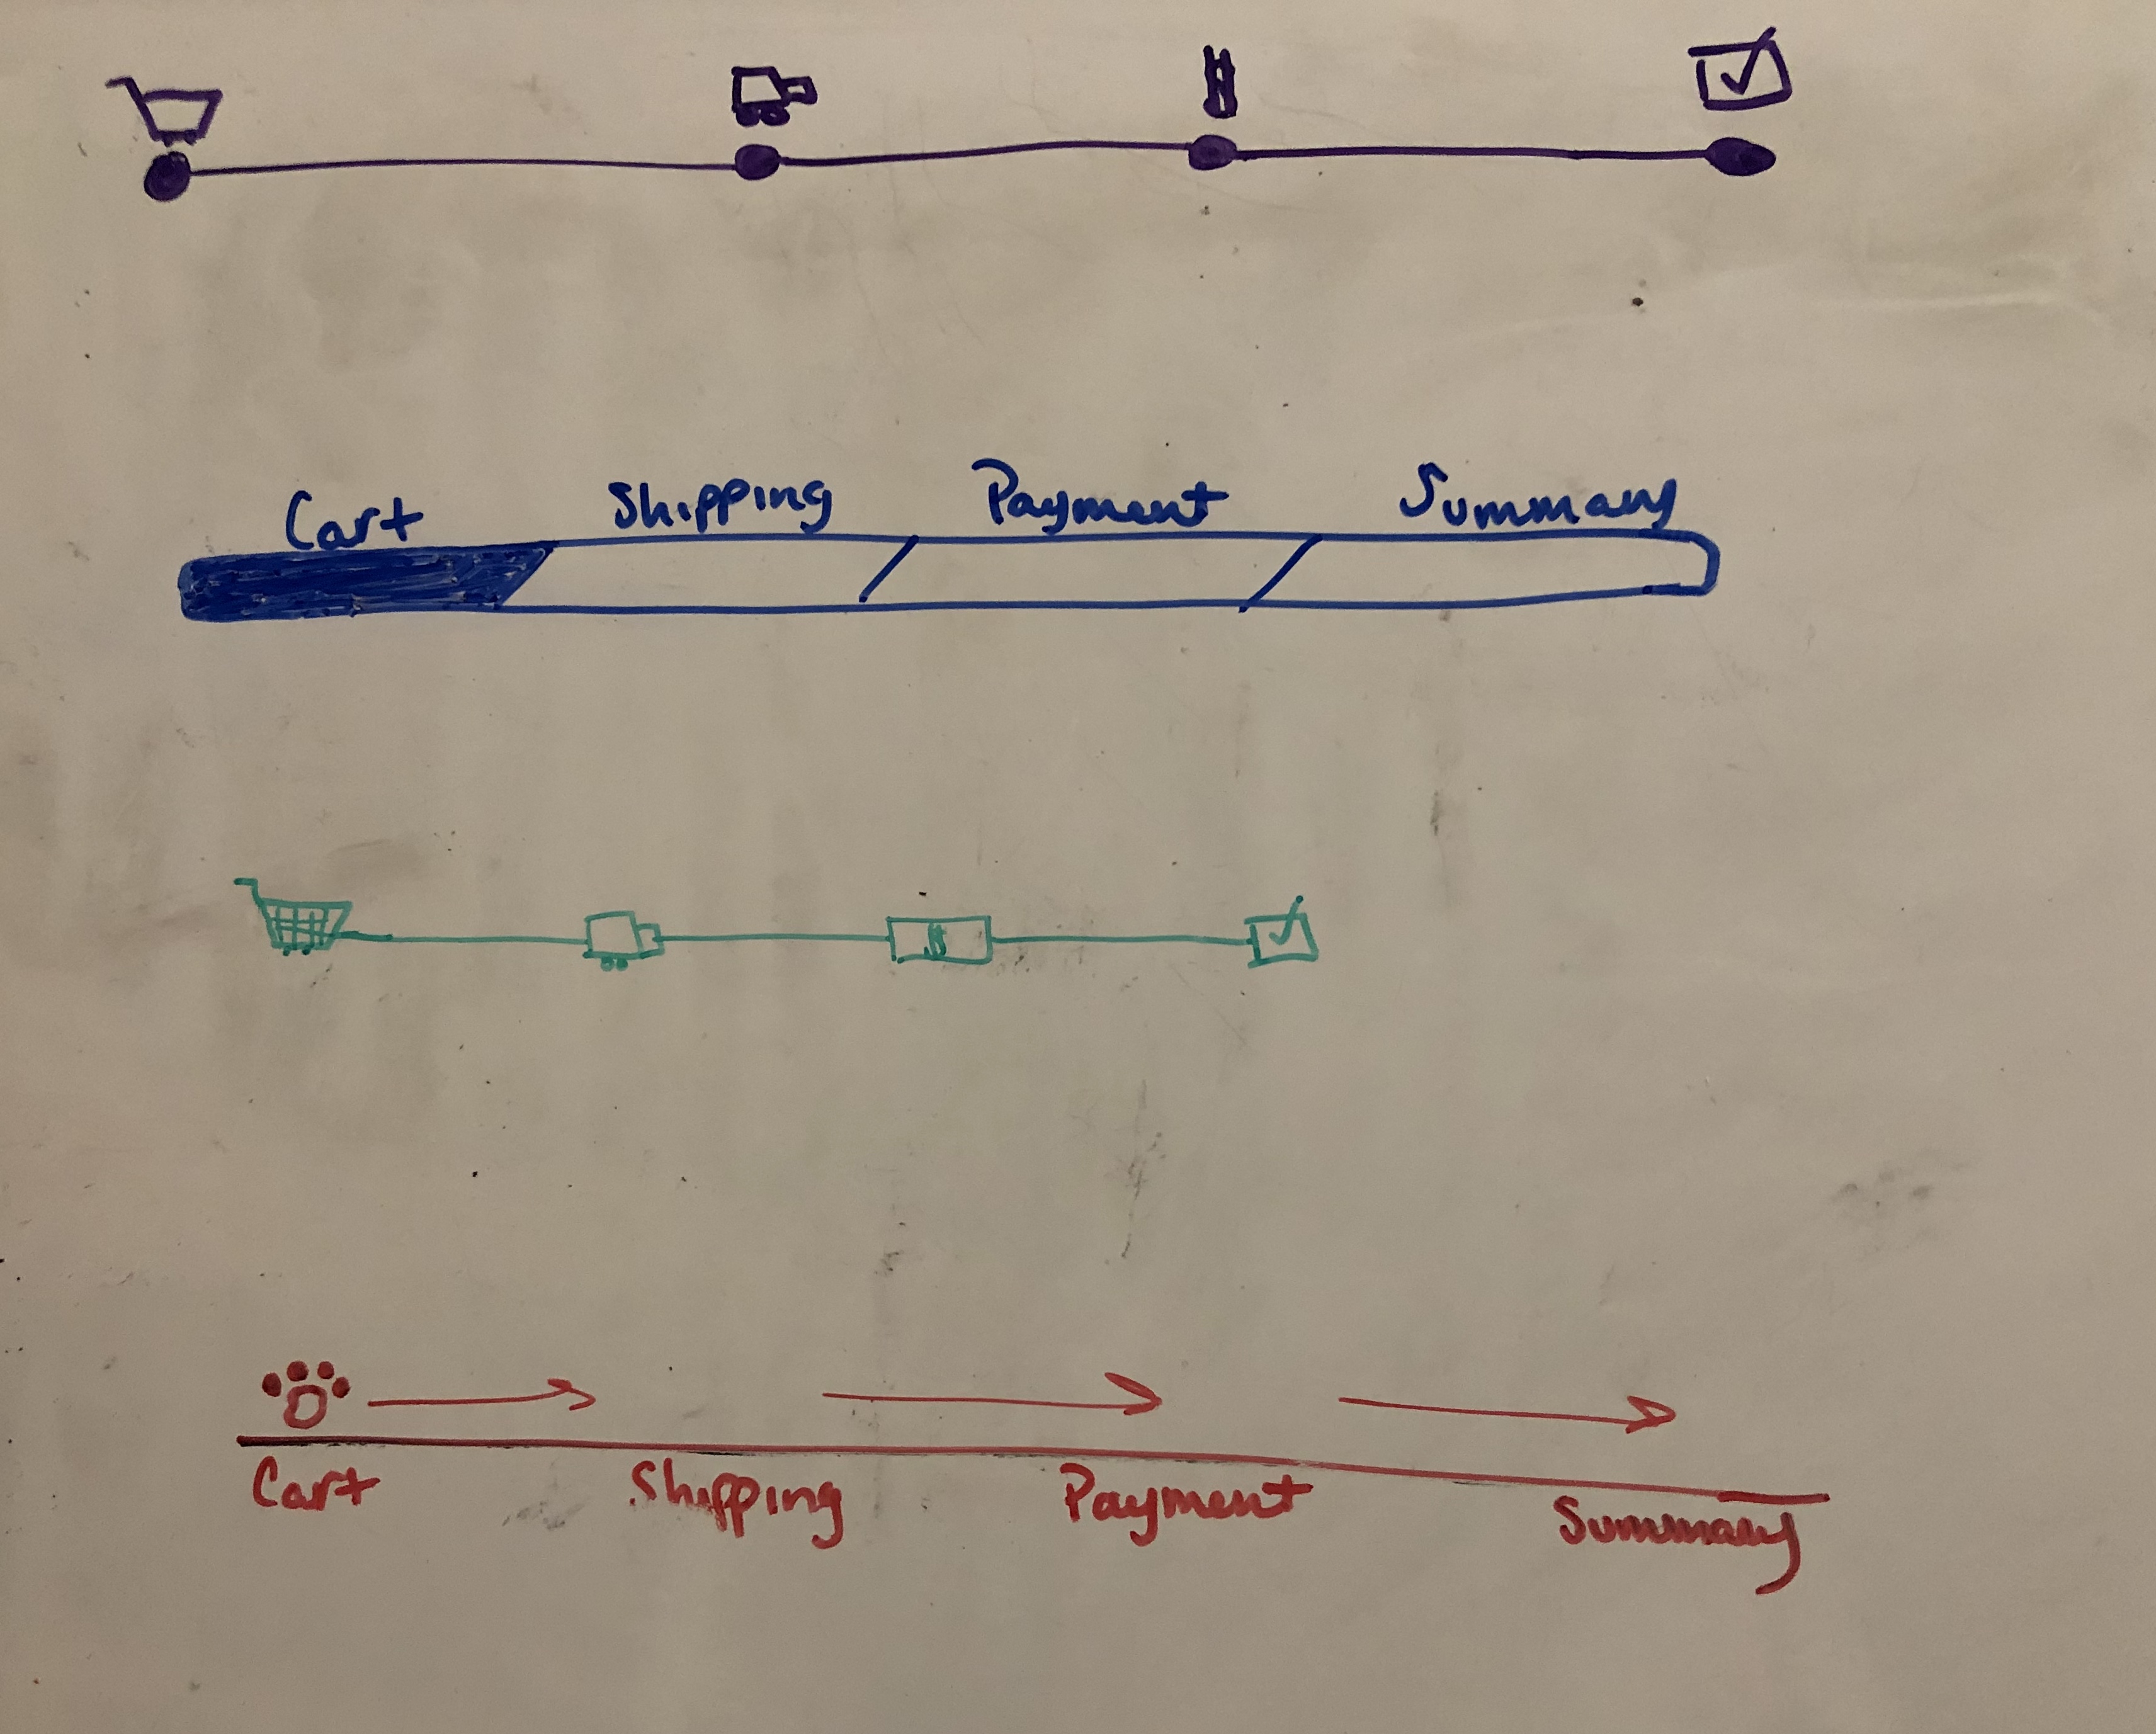 $
Cart Shipping Payment Summary
$
Cart Shipping Payment Summary